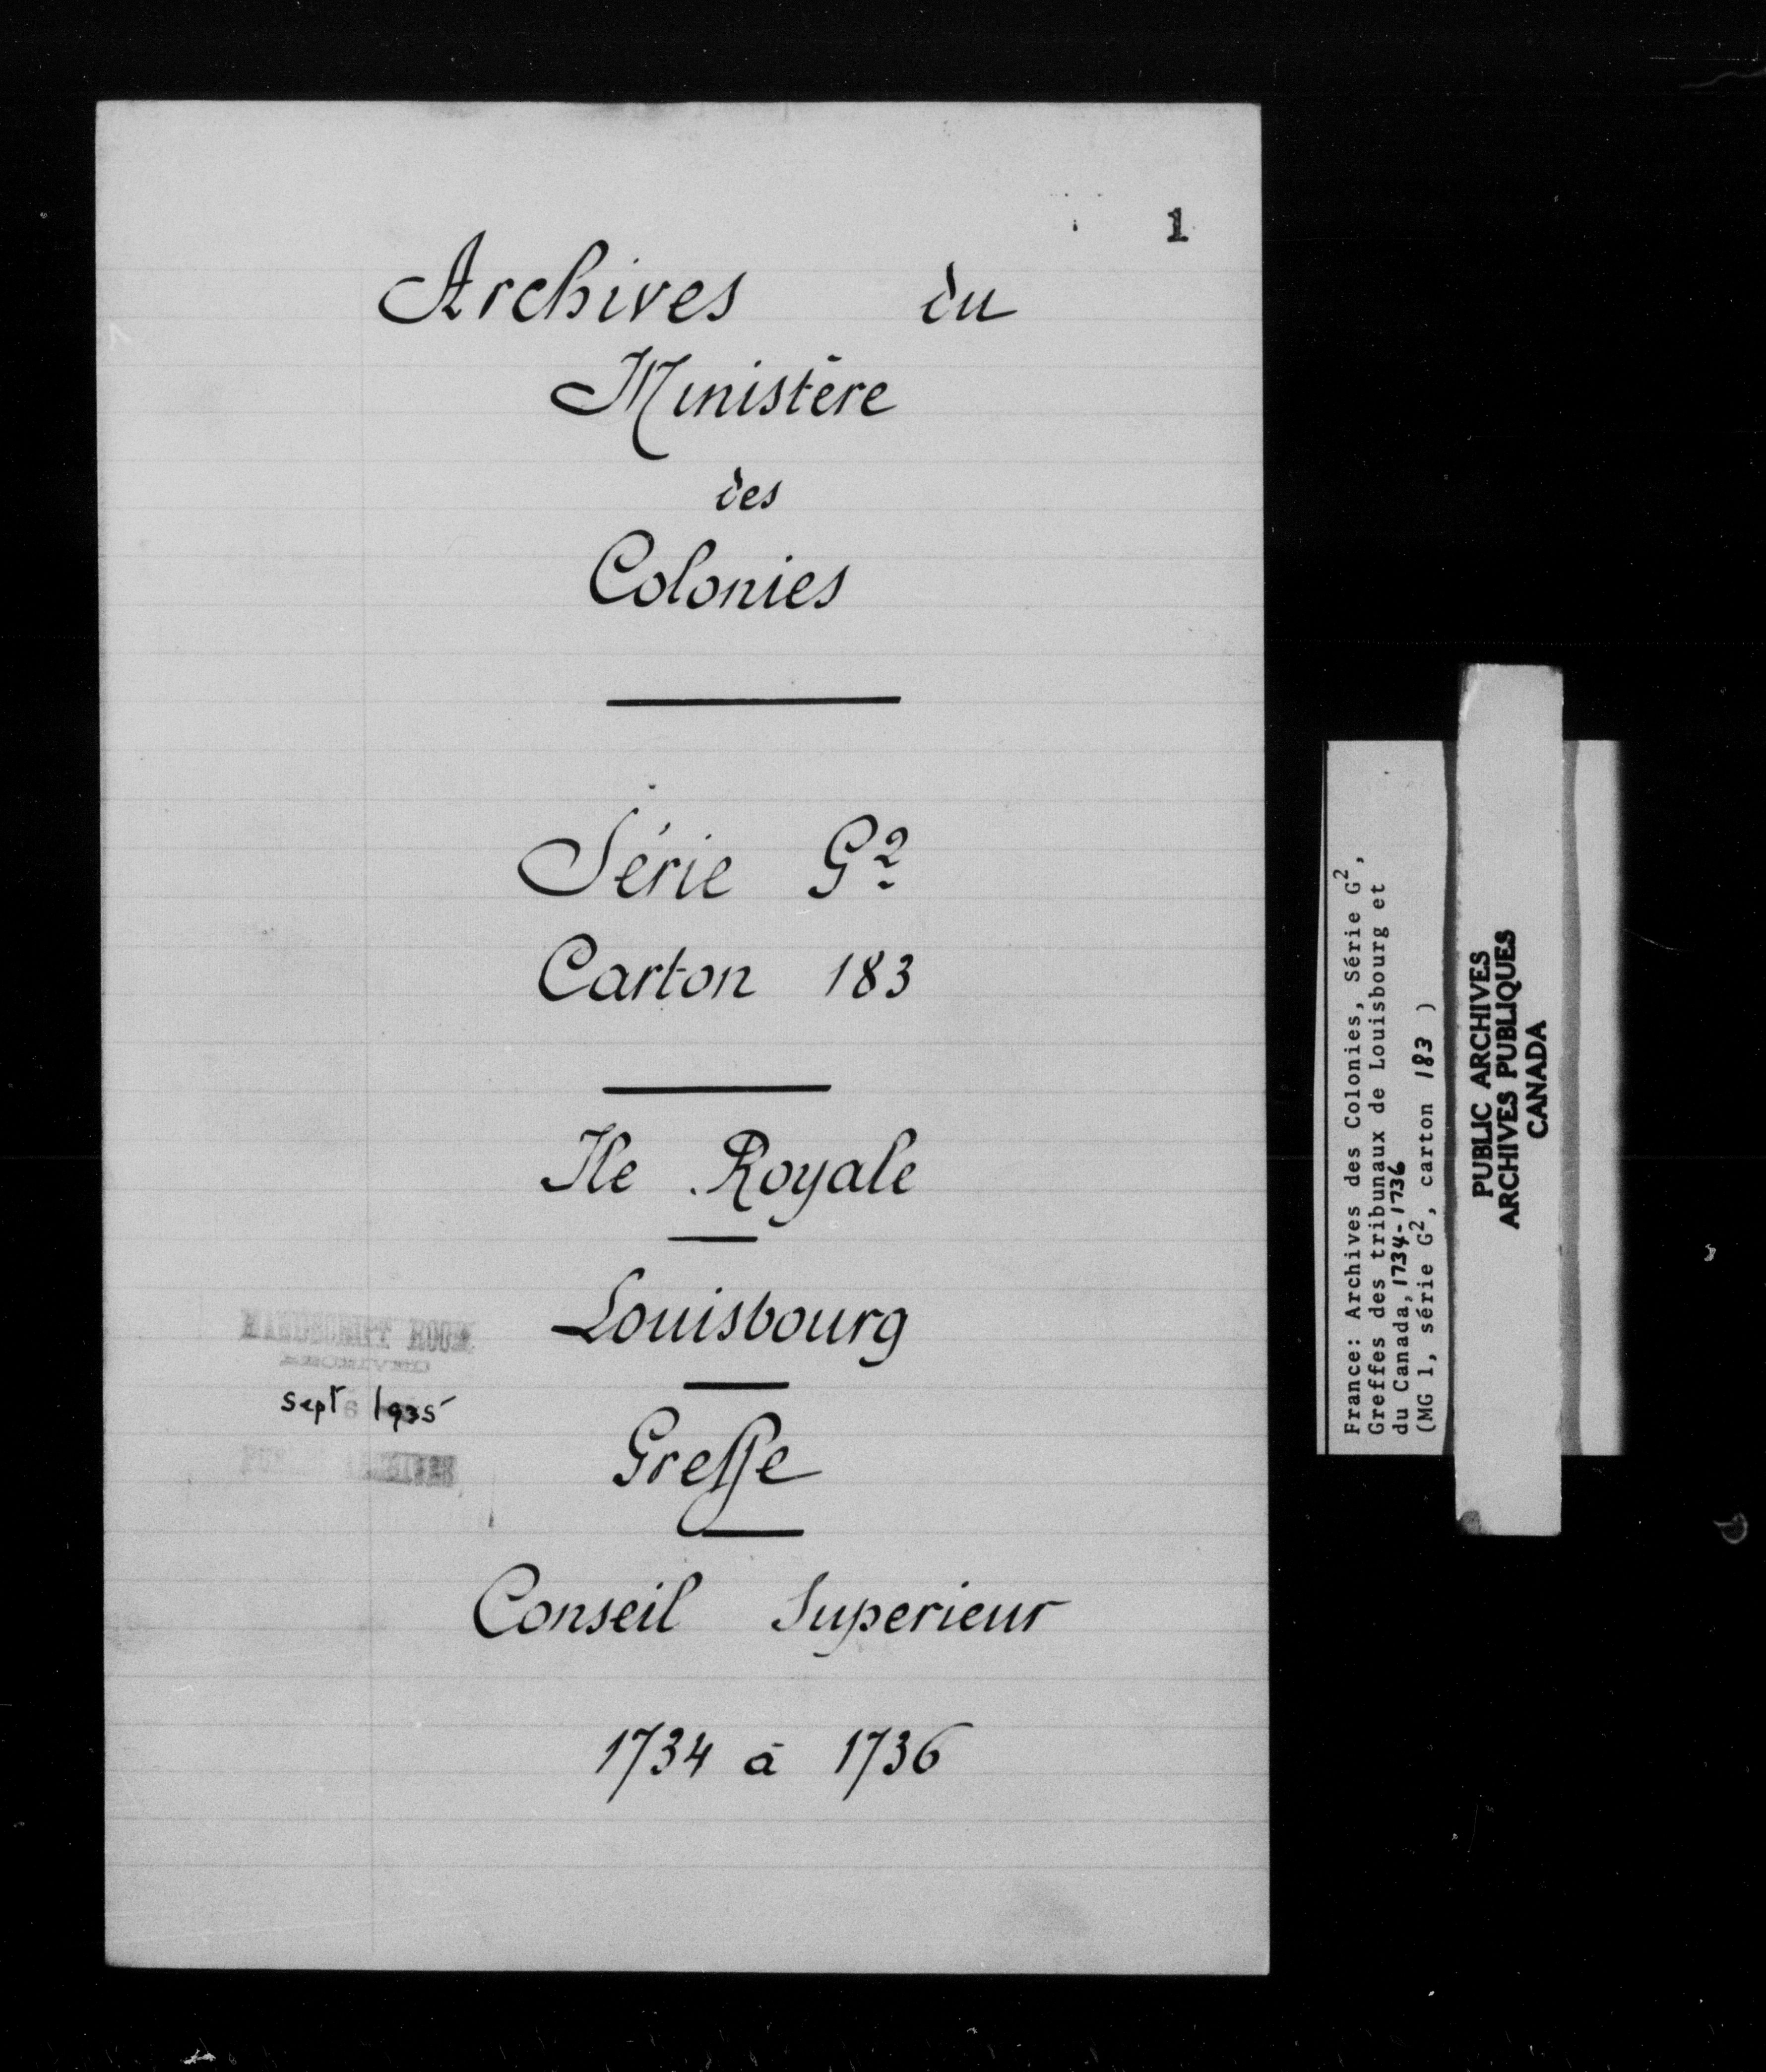 1
Archives du
Ministère
des
Colonies
Série G2
Carton 183
Ile Royale
Louisbourg
MANUSCRIPT ROOM
Sept 1935
Greffe
Conseil Superieur
1734 à 1736
France: Archives des Colonies, Série G2,
Greffes des tribunaux de Louisbourg et
du Canada, 1734-1736
(MG 1, série G2, carton 183 )
PUBLIC ARCHIVES
ARCHIVES PUBLIQUES
CANADA